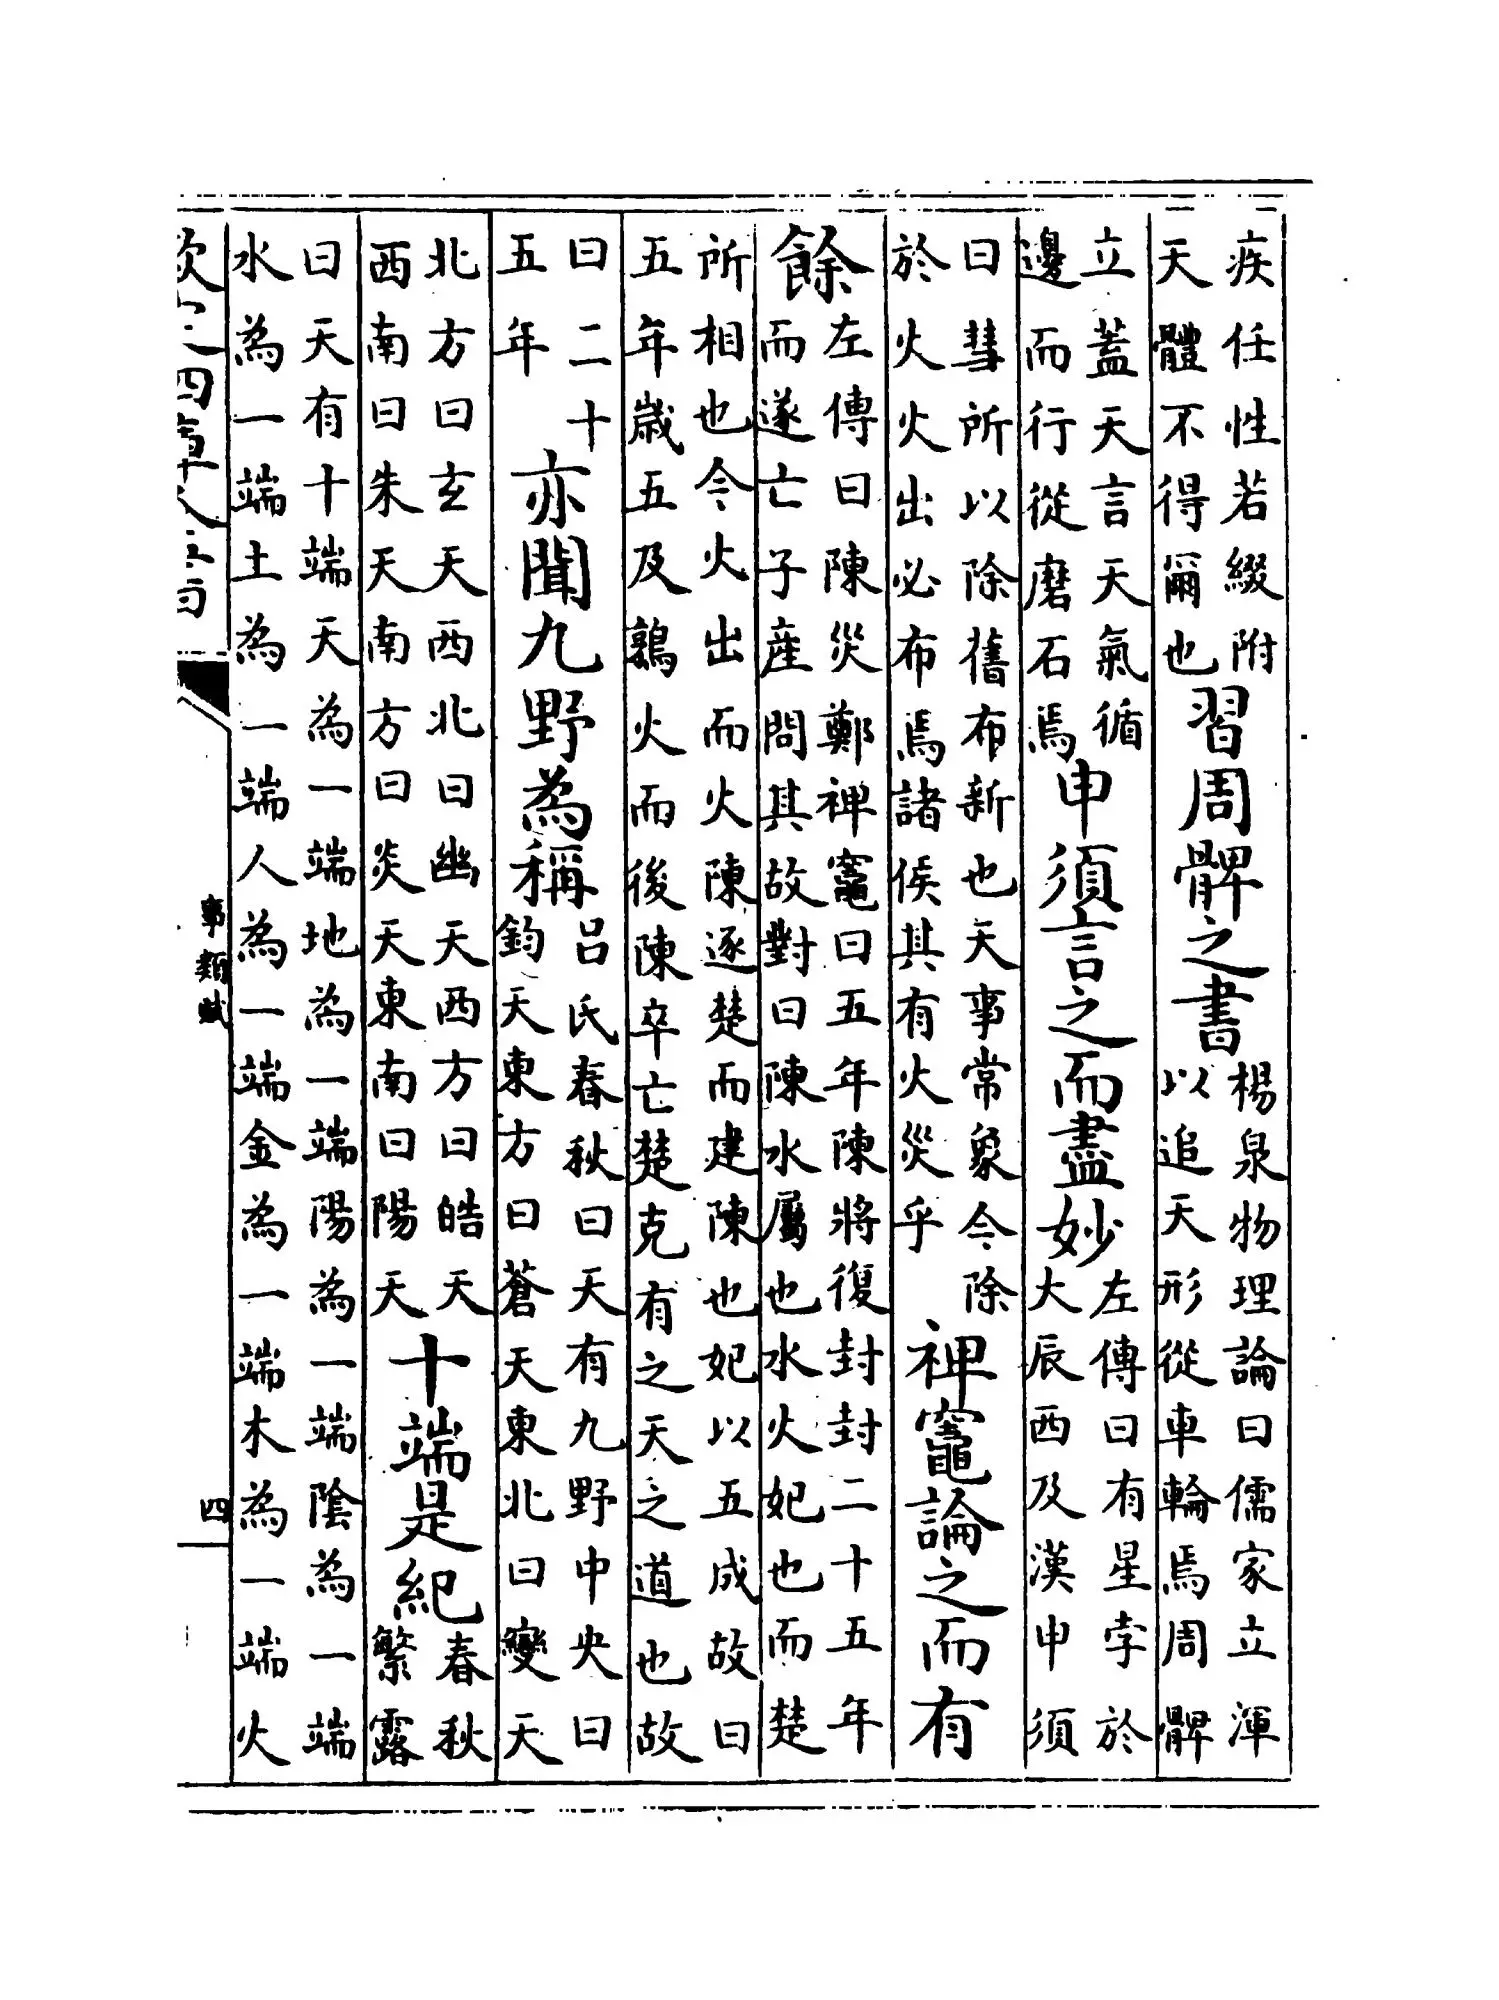 疾任性若綴附
天體不得爾也
習周髀之書
楊泉物理論曰儒家立渾
以追天形從車輪焉周髀
立蓋天言天氣循
邊而行從磨石焉
申須言之而盡妙
左傳曰有星孛於
大辰西及漢申須
曰彗所以除舊布新也天事常象今除
於火火出必布焉諸侯其有火災乎
禆竈論之而有
餘
左傳曰陳災鄭禆竈曰五年陳將復封封二十五年
而遂亡子産問其故對曰陳水屬也水火妃也而楚
所相也今火出而火陳逐楚而建陳也妃以五成故曰
五年歲五及鶉火而後陳卒亡楚克有之天之道也故
曰二十
五年
亦聞九野為稱
呂氏春秋曰天有九野中央曰
鈞天東方曰蒼天東北曰變天
北方曰玄天西北曰幽天西方曰皓天
西南曰朱天南方曰炎天東南曰陽天
十端是紀
春秋
繁露
曰天有十端天為一端地為一端陽為一端陰為一端
水為一端土為一端人為一端金為一端木為一端火
欽定四庫全書
事類賦
四